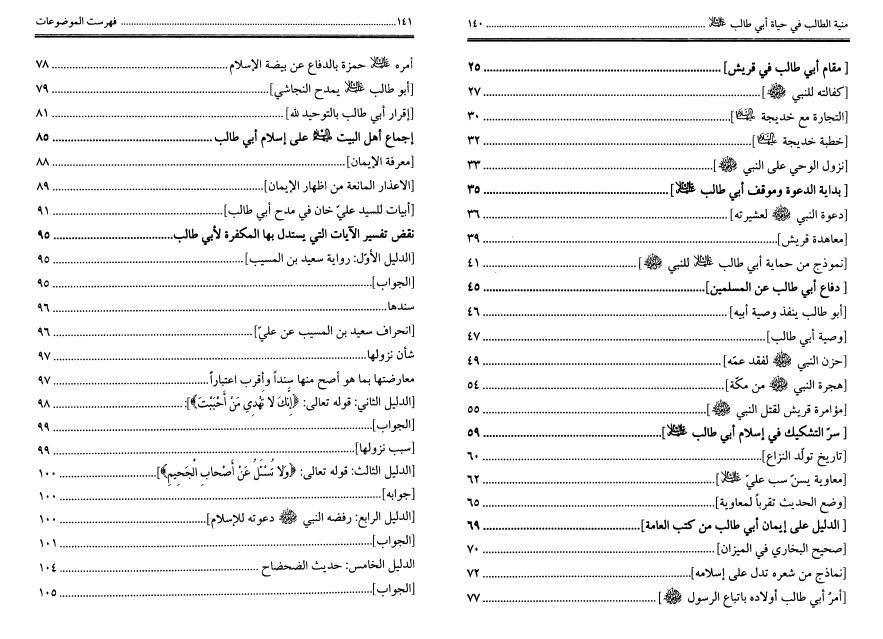 منية الطالب في حياة أبي طالب ﵇ .......... ١٤٠
[ مقام أبي طالب في قريش] .......... ٢٥
[كفالته للنبي ﷺ] .......... ٢٧
[التجارة مع خديجة ﵍] .......... ٣٠
[خطبة خديجة ﵍] .......... ٣٢
[نزول الوحي على النبي ﷺ] .......... ٣٣
[ بداية الدعوة وموقف أبي طالب ﵇] .......... ٣٥
[دعوة النبي ﷺ لعشيرته] .......... ٣٦
[معاهدة قريش] .......... ٣٩
[نموذج من حماية أبي طالب ﵇ للنبي ﷺ] .......... ٤١
[ دفاع أبي طالب عن المسلمين] .......... ٤٥
[أبو طالب ينفذ وصية أبيه] .......... ٤٦
[وصية أبي طالب] .......... ٤٧
[حزن النبي ﷺ لفقد عمّه] .......... ٤٩
[هجرة النبي ﷺ من مكّة] .......... ٥٤
[مؤامرة قريش لقتل النبي ﷺ] .......... ٥٥
[ سرّ التشكيك في إسلام أبي طالب ﵇] .......... ٥٩
[تاريخ تولّد النزاع] .......... ٦٠
[معاوية يسنّ سب عليّ ﵇] .......... ٦٢
[وضع الحديث تقرباً لمعاوية] .......... ٦٥
[ الدليل على إيمان أبي طالب من كتب العامة] .......... ٦٩
[صحيح البخاري في الميزان] .......... ٧٠
[نماذج من شعره تدل على إسلامه] .......... ٧٢
[أمرُ أبي طالب أولاده باتباع الرسول ﷺ] .......... ٧٧
١٤١ .......... فهرست الموضوعات
أمره ﵇ حمزة بالدفاع عن بيضة الإسلام .......... ٧٨
[أبو طالب ﵇ يمدح النجاشي] .......... ٧٩
[إقرار أبي طالب بالتوحيد لله] .......... ٨١
إجماع أهل البيت ﵈ على إسلام أبي طالب .......... ٨٥
[معرفة الإيمان] .......... ٨٨
[الاعذار المانعة من اظهار الإيمان] .......... ٨٩
[أبيات للسيد عليّ خان في مدح أبي طالب] .......... ٩١
نقض تفسير الآيات التي يستدل بها المكفرة لأبي طالب .......... ٩٥
[الدليل الأوّل: رواية سعيد بن المسيب] .......... ٩٥
[الجواب] .......... ٩٥
سندها .......... ٩٦
[انحراف سعيد بن المسيب عن عليّ] .......... ٩٦
شأن نزولها .......... ٩٧
معارضتها بما هو أصح منها سنداً وأقرب اعتباراً .......... ٩٧
[الدليل الثاني: قوله تعالى: ﴿إِنَّكَ لَا تَهْدِي مَنْ أَحْبَبْتَ﴾]: .......... ٩٨
[الجواب] .......... ٩٩
[سبب نزولها] .......... ٩٩
[الدليل الثالث: قوله تعالى: ﴿وَلَا تُسْئَلُ عَنْ أَصْحَابِ الْجَحِيمِ﴾] .......... ١٠٠
[جوابه] .......... ١٠٠
[الدليل الرابع: رفضه النبي ﷺ دعوته للإسلام] .......... ١٠٠
[الجواب] .......... ١٠١
الدليل الخامس: حديث الضحضاح .......... ١٠٤
[الجواب] .......... ١٠٥